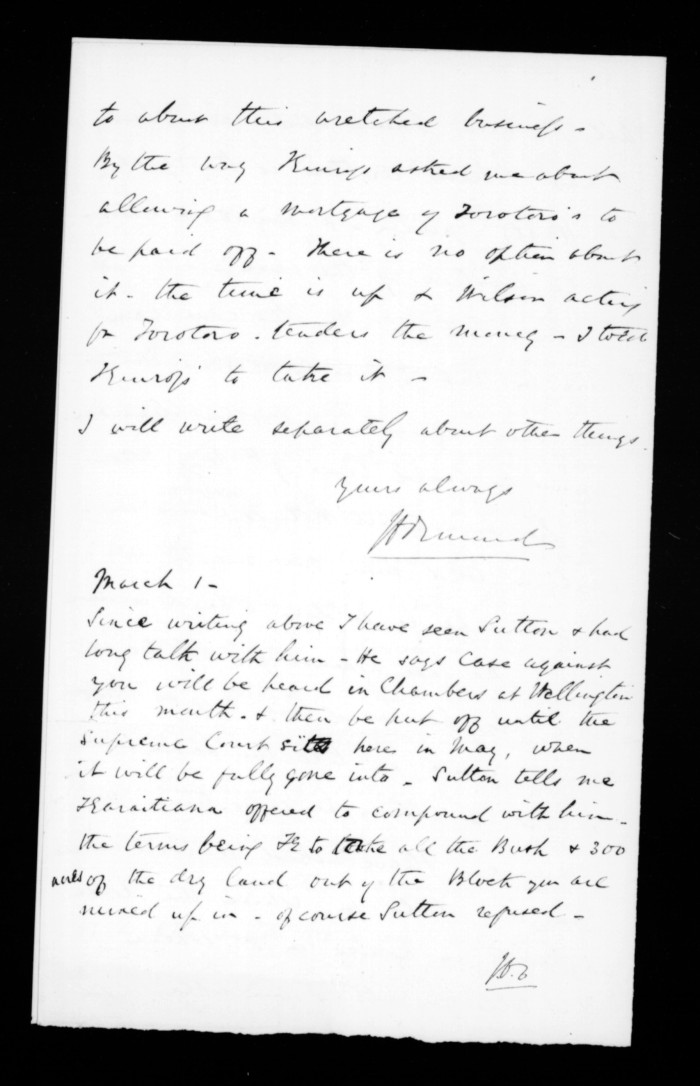 to about this wretched business -
By the way Kinross asked me about
allowing a mortgage of Torotoro's to
be paid off - There is no option about
it - the time is up & Wilson acting
for Torotoro - tenders the money - I told
Kinross to take it -
I will write separately about other things.
Yours always
JD Ormond
March 1 -
Since writing above I have seen Sutton & had
long talk with him - He says case against
you will be heard in Chambers at Wellington
this month - & then be put off until the
Supreme Court sits here in May, when
it will be fully gone into - Sutton tells me
Karaitiana offered to compound with him -
the terms being K to take all the Bush & 300
acres of the dry land out of the Block you are
mixed up in - of course Sutton refused -